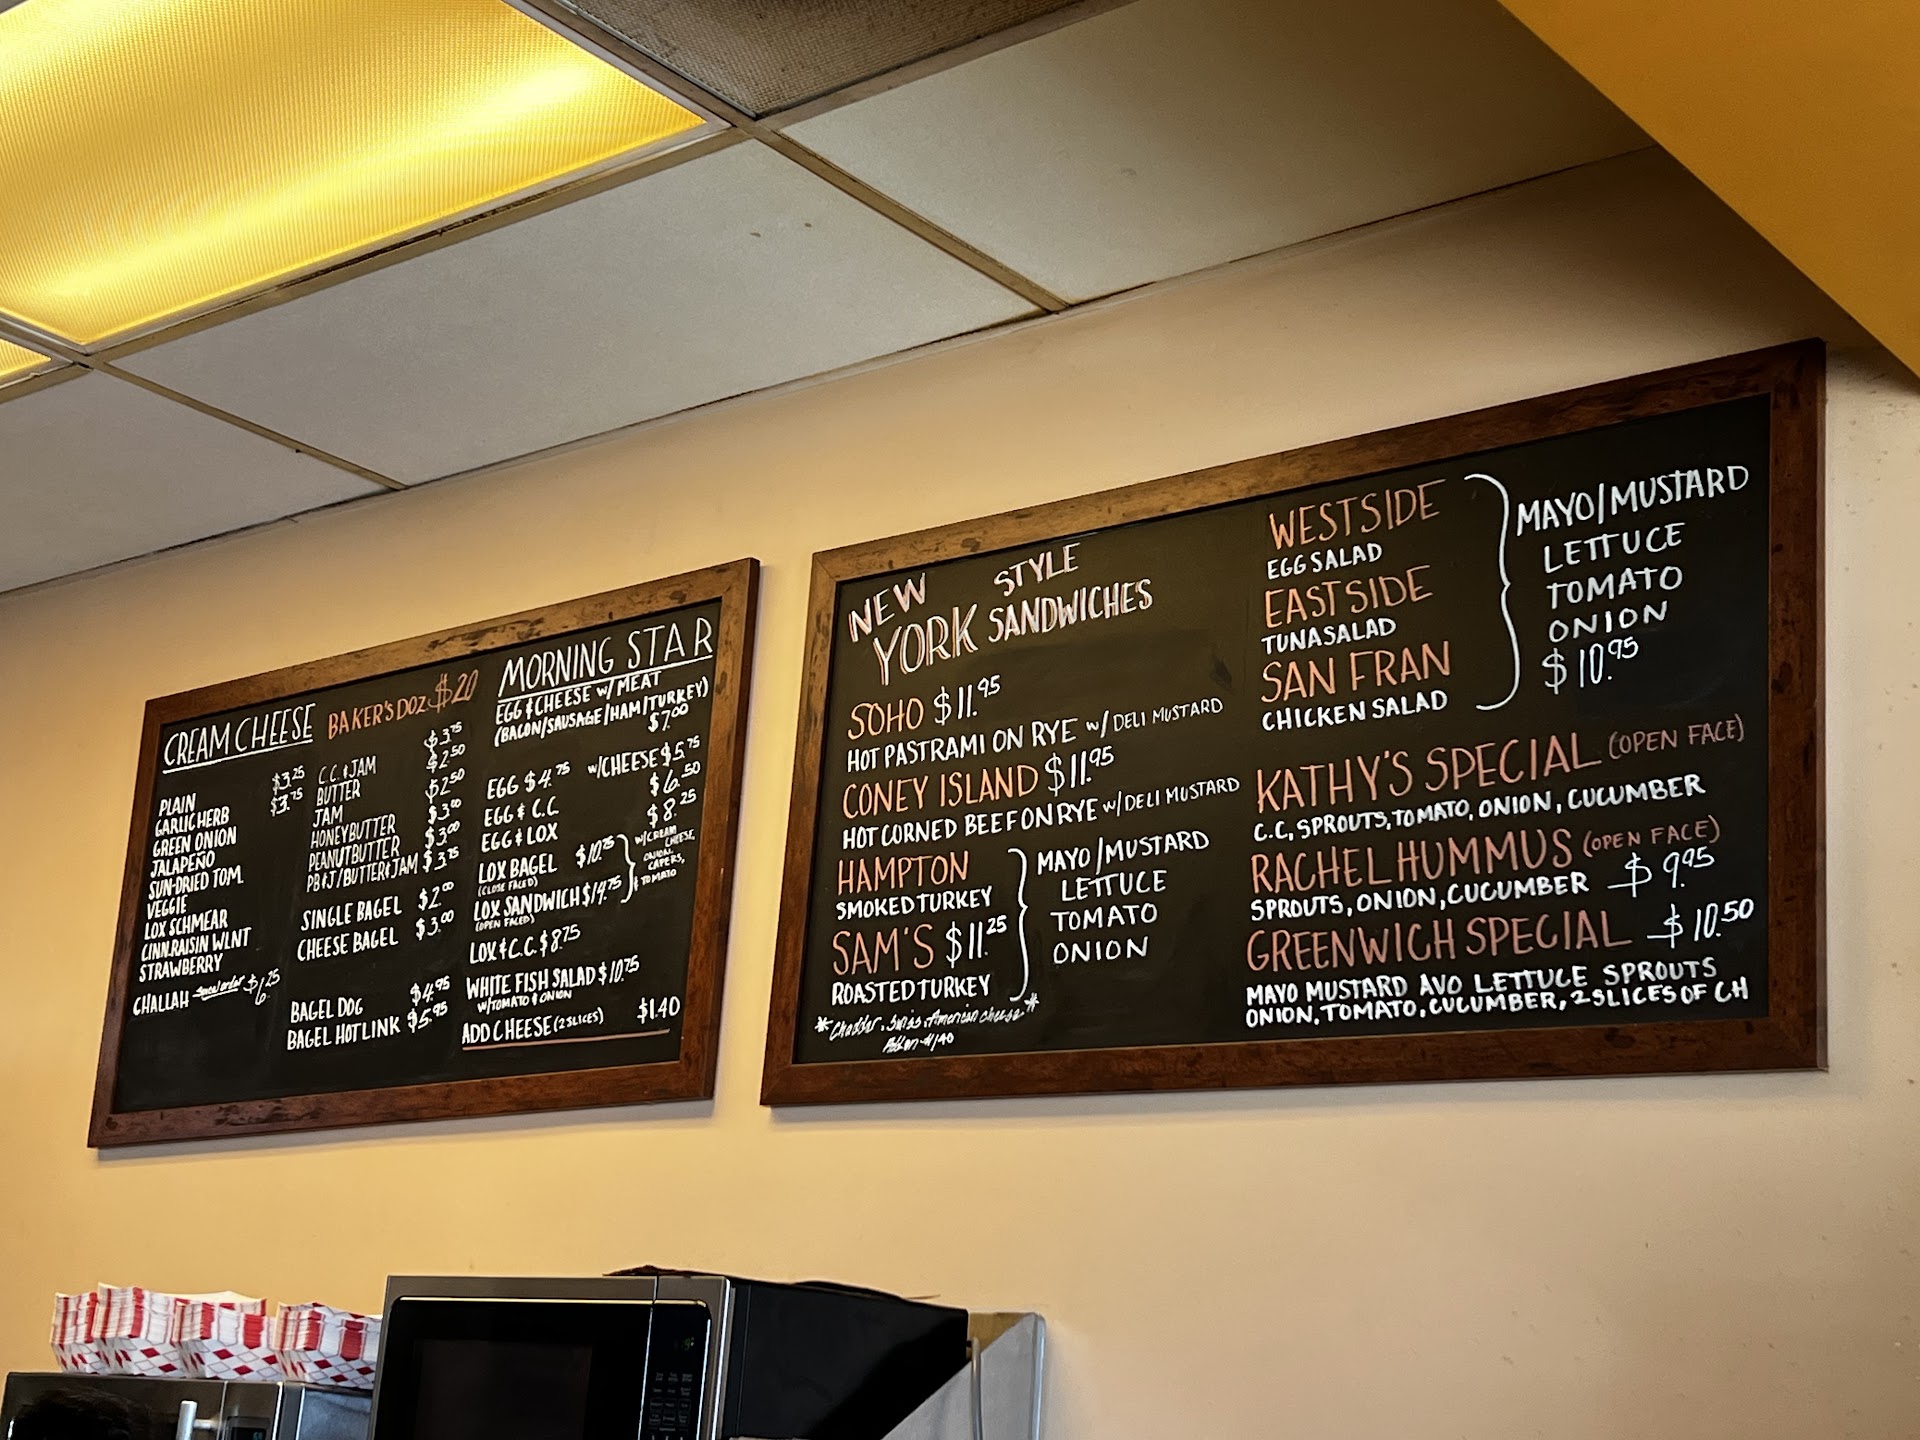 CREAM CHEESE
PLAIN $3.25
GARLIC HERB $3.75
GREEN ONION
JALAPEÑO
SUN-DRIED TOM.
VEGGIE
LOX SCHMEAR
CINN.RAISIN WLNT
STRAWBERRY
CHALLAH special order $6.25
BAKER'S DOZ. $20
C.C. & JAM $3.75
BUTTER $2.50
JAM $2.50
HONEYBUTTER $3.00
PEANUTBUTTER $3.00
PB&J/BUTTER&JAM $3.75
SINGLE BAGEL $2.00
CHEESE BAGEL $3.00
BAGEL DOG $4.95
BAGEL HOTLINK $5.95
MORNING STAR
EGG & CHEESE W/ MEAT
(BACON/SAUSAGE/HAM/TURKEY)
$7.00
EGG $4.75 W/CHEESE $5.75
EGG & C.C. $6.50
EGG & LOX $8.25
LOX BAGEL $10.75
(CLOSE FACED)
LOX SANDWICH $14.75
(OPEN FACED)
W/CREAM
CHEESE,
ONION,
CAPERS,
& TOMATO
LOX & C.C. $8.75
WHITE FISH SALAD $10.75
W/TOMATO & ONION
ADD CHEESE (2 SLICES) $1.40
NEW YORK STYLE SANDWICHES
SOHO $11.95
HOT PASTRAMI ON RYE W/ DELI MUSTARD
CONEY ISLAND $11.95
HOT CORNED BEEF ON RYE W/ DELI MUSTARD
HAMPTON
SMOKED TURKEY
SAM'S $11.25
ROASTED TURKEY
MAYO/MUSTARD
LETTUCE
TOMATO
ONION
*Cheddar, Swiss, American cheese*
Add on $1.40
WESTSIDE
EGG SALAD
EASTSIDE
TUNA SALAD
SAN FRAN
CHICKEN SALAD
MAYO/MUSTARD
LETTUCE
TOMATO
ONION
$10.95
KATHY'S SPECIAL (OPEN FACE)
C.C, SPROUTS, TOMATO, ONION, CUCUMBER
RACHEL HUMMUS (OPEN FACE)
SPROUTS, ONION, CUCUMBER $9.95
GREENWICH SPECIAL $10.50
MAYO MUSTARD AVO LETTUCE SPROUTS
ONION, TOMATO, CUCUMBER, 2 SLICES OF CH